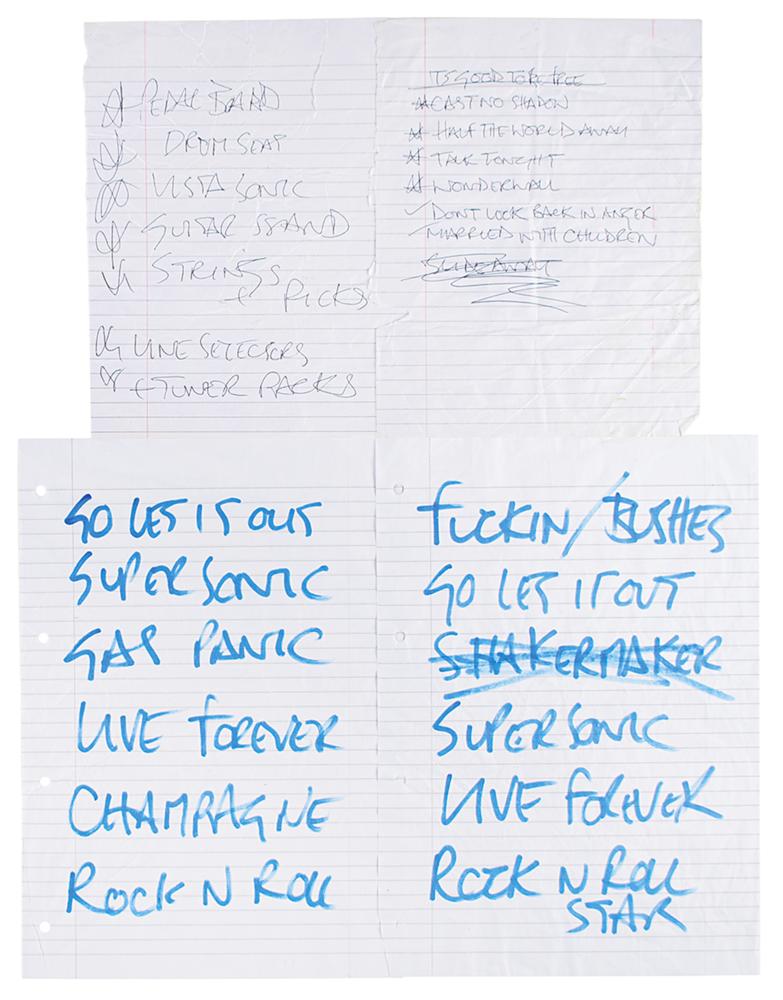 PEDAL BOARD
DRUM SEAT
VISTA SONIC
GUITAR STAND
STRINGS
+ PICKS
LINE SELECTERS
+ TUNER PACKS
ITS GOOD TO BE FREE
CAST NO SHADOW
HALF THE WORLD AWAY
TALK TONIGHT
WONDERWALL
DONT LOOK BACK IN ANGER
MARRIED WITH CHILDREN
SLIDE AWAY
GO LET IT OUT
SUPERSONIC
GAS PANIC
LIVE FOREVER
CHAMPAGNE
ROCK N ROLL
FUCKIN/BUSHES
GO LET IT OUT
SHAKERMAKER
SUPERSONIC
LIVE FOREVER
ROCK N ROLL
STAR